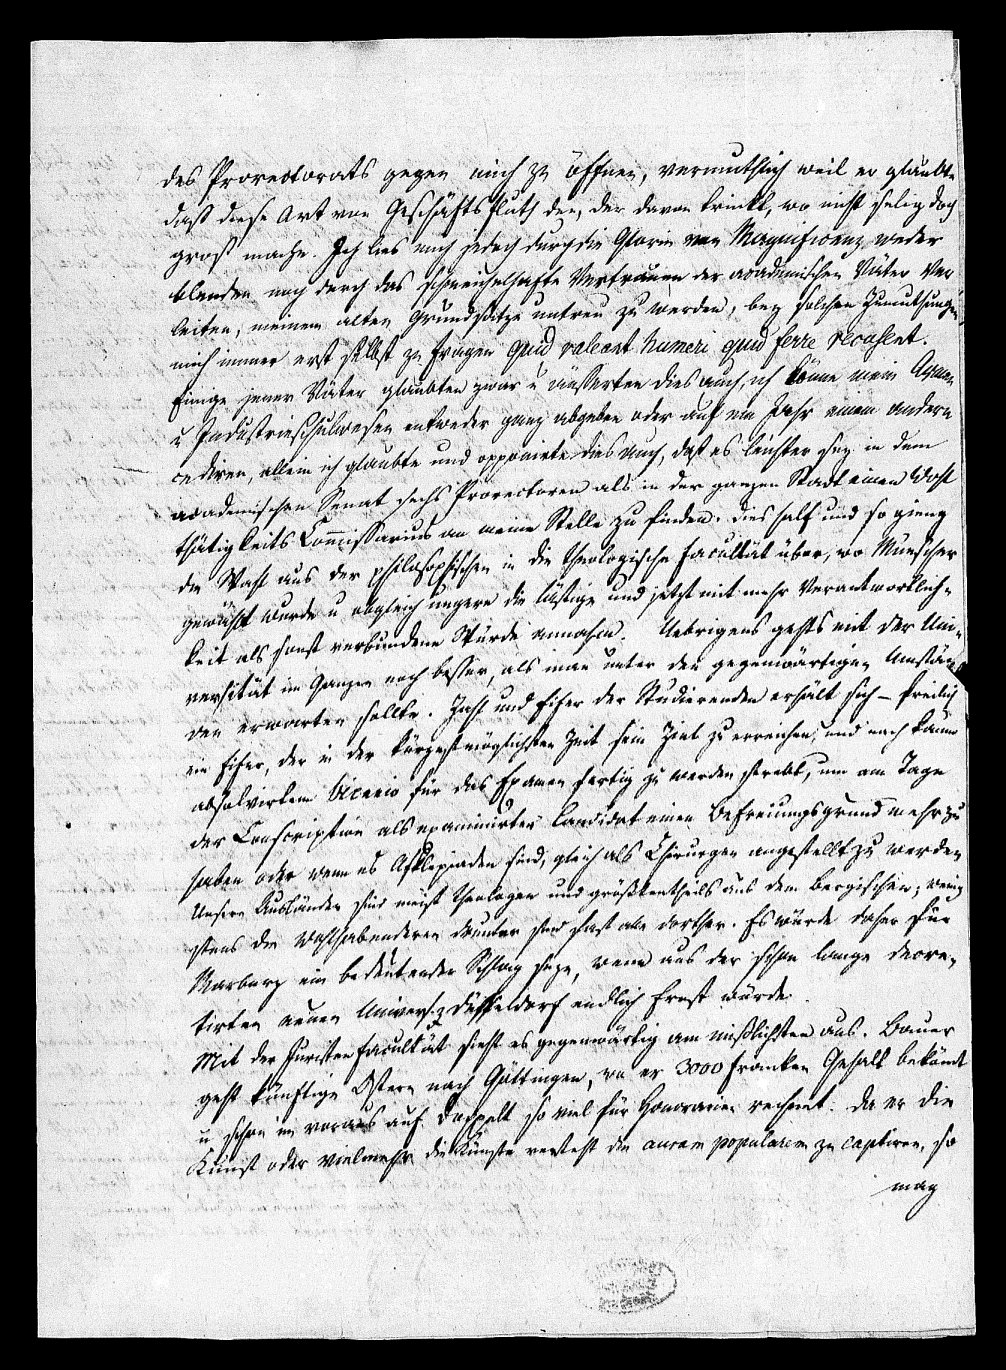 des Prorectorats gegen mich zu öffnen, vermuthlich weil er glaubte
daß diese Art von Geschäftsfluth den, der davon trinkt, wo nicht selig doch
groß mache. Ich lies mich jedoch durch die Glorie von Magnificenz weder
blenden noch durch das schmeichelhafte Vertrauen der academischen Väter ver
leiten, meinem alten Grundsatze untreu zu werden, bey solchen Zumuthungen
mich immer erst selbst zu fragen quid valeant humeri quid ferre recusent.
Einige jener Väter glaubten zwar u äusserten dies auch, ich könne mein Armen
u Industrieschulwesen entweder ganz abgeben oder auf ein Jahr einem andern
cediren, allein ich glaubte und opponirte dies auch, daß es leichter sey in dem
academischen Senat sechs Prorectoren als in der ganzen Stadt einen Wohl
thätigkeits Com̅issarius an meine Stelle zu finden. Dies half und so gieng
die Wahl aus der philosophischen in die theologische Facultät über, wo Münscher
gewählt wurde u obgleich ungern die lästige und jetzt mit mehr Verantwortlich-
keit als sonst verbundene Würde annahm. Uebrigens gehts mit der Uni-
versität im Ganzen noch besser, als man unter den gegenwärtigen Umstän
den erwarten sollte. Zahl und Eifer der Studierenden erhält sich – freilich
ein Eifer, der in der kürzestmöglichsten Zeit sein Ziel zu erreichen, und nach kaum
absolvirtem biennio für das Examen fertig zu werden strebt, um am Tage
der Conscription als examinirter Candidat einen Befreiungsgrund mehr zu
haben oder wenn es Asklepiaden sind, gleich als Chirurgen angestellt zu werden
Unsere Ausländer sind meist Theologen und größtentheils aus dem Bergischen; wenig
stens die wohlhabenderen darunter sind fast alle dorther. Es würde daher für
Marburg ein bedeutender Schlag seyn, wenn aus der schon lange decre-
tirten neuen Univers. z. Düsseldorf endlich Ernst würde.
Mit der Juristenfacultät sieht es gegenwärtig am mißlichsten aus. Bauer
geht künftige Ostern nach Göttingen, wo er 3000 Franken Gehalt bekömt
u schon im voraus auf doppelt so viel für Honorarien rechnet. Da er die
Kunst oder vielmehr die Künste versteht die auram popularem zu captiren, so
mag